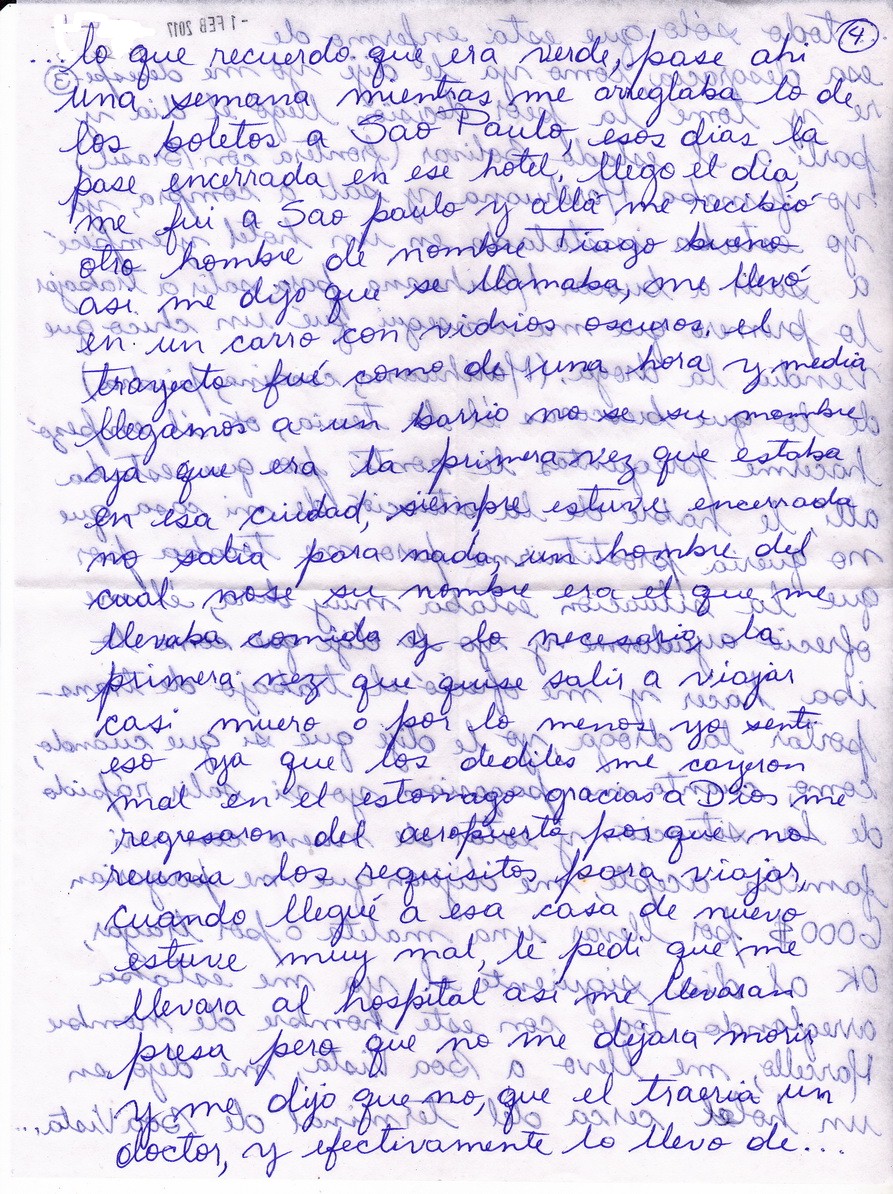 -1 FEB 2017
4
...lo que recuerdo que era verde, pase ahi
una semana mientras me arreglaba lo de
los boletos a Sao Paulo, esos dias la
pase encerrada en ese hotel. llego el dia,
me fui a Sao paulo y allá me recibió
otro hombre de nombre Tiago bueno
asi me dijo que se llamaba, me llevó
en un carro con vidrios oscuros. el
trayecto fué como de una hora y media
llegamos a un barrio no se su nombre
ya que era la primera vez que estaba
en esa ciudad, siempre estuve encerrada
no salia para nada, un hombre del
cual nose su nombre era el que me
llevaba comida y lo necesario, la
primera vez que quise salir a viajar
casi muero o por lo menos yo senti
eso ya que los dediles me cayeron
mal en el estomago gracias a Dios me
regresaron del aeropuerto porque no
reunia los requisitos para viajar,
cuando llegué a esa casa de nuevo
estuve muy mal, le pedi que me
llevara al hospital asi me llevaran
presa pero que no me dejara morir
y me dijo que no, que el traeria un
doctor, y efectivamente lo llevo de...